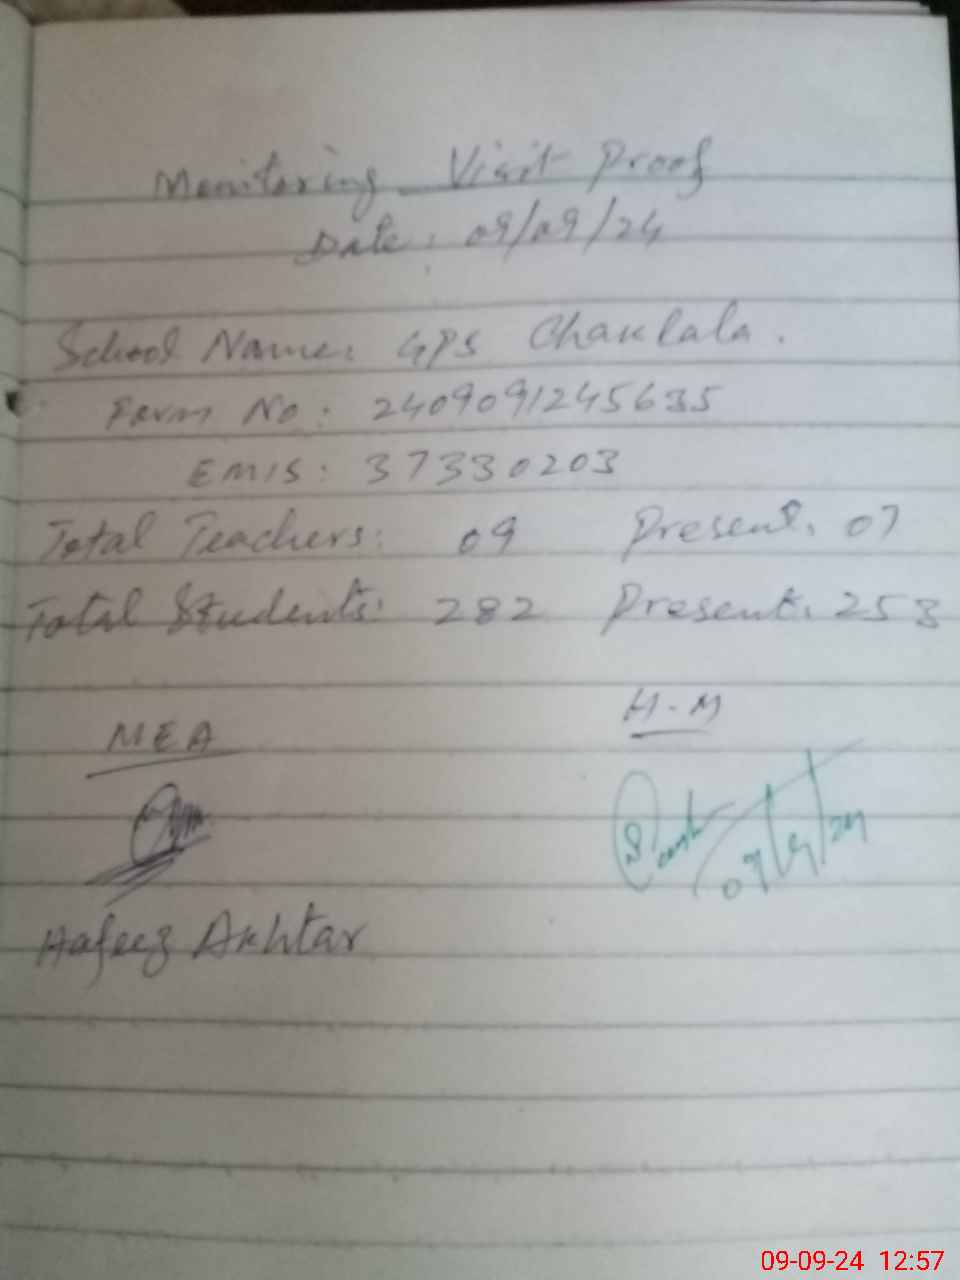 Monitoring Visit Proof
Date: 09/09/24
School Name: GPS Chaklala.
Form No: 2409091245635
EMIS: 37330203
Total Teachers: 09 Present: 07
Total Students: 282 Present: 253
MEA H.M
Hafeez Akhtar
09-09-24 12:57